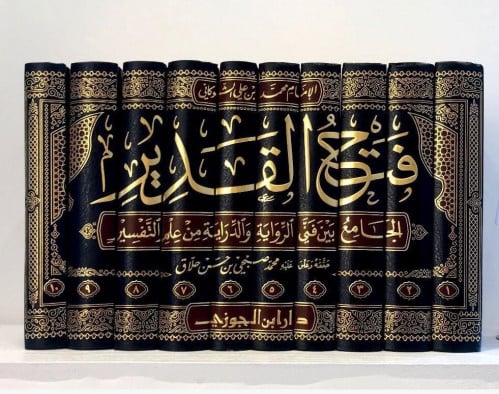 الإمام محمد بن علي الشوكاني
فتح القدير
الجامع بين فني الرواية والدراية من علم التفسير
حققه وعلق عليه محمد صبحي بن حسن حلاق
دار ابن الجوزي
١٠ ٩ ٨ ٧ ٦ ٥ ٤ ٣ ٢ ١